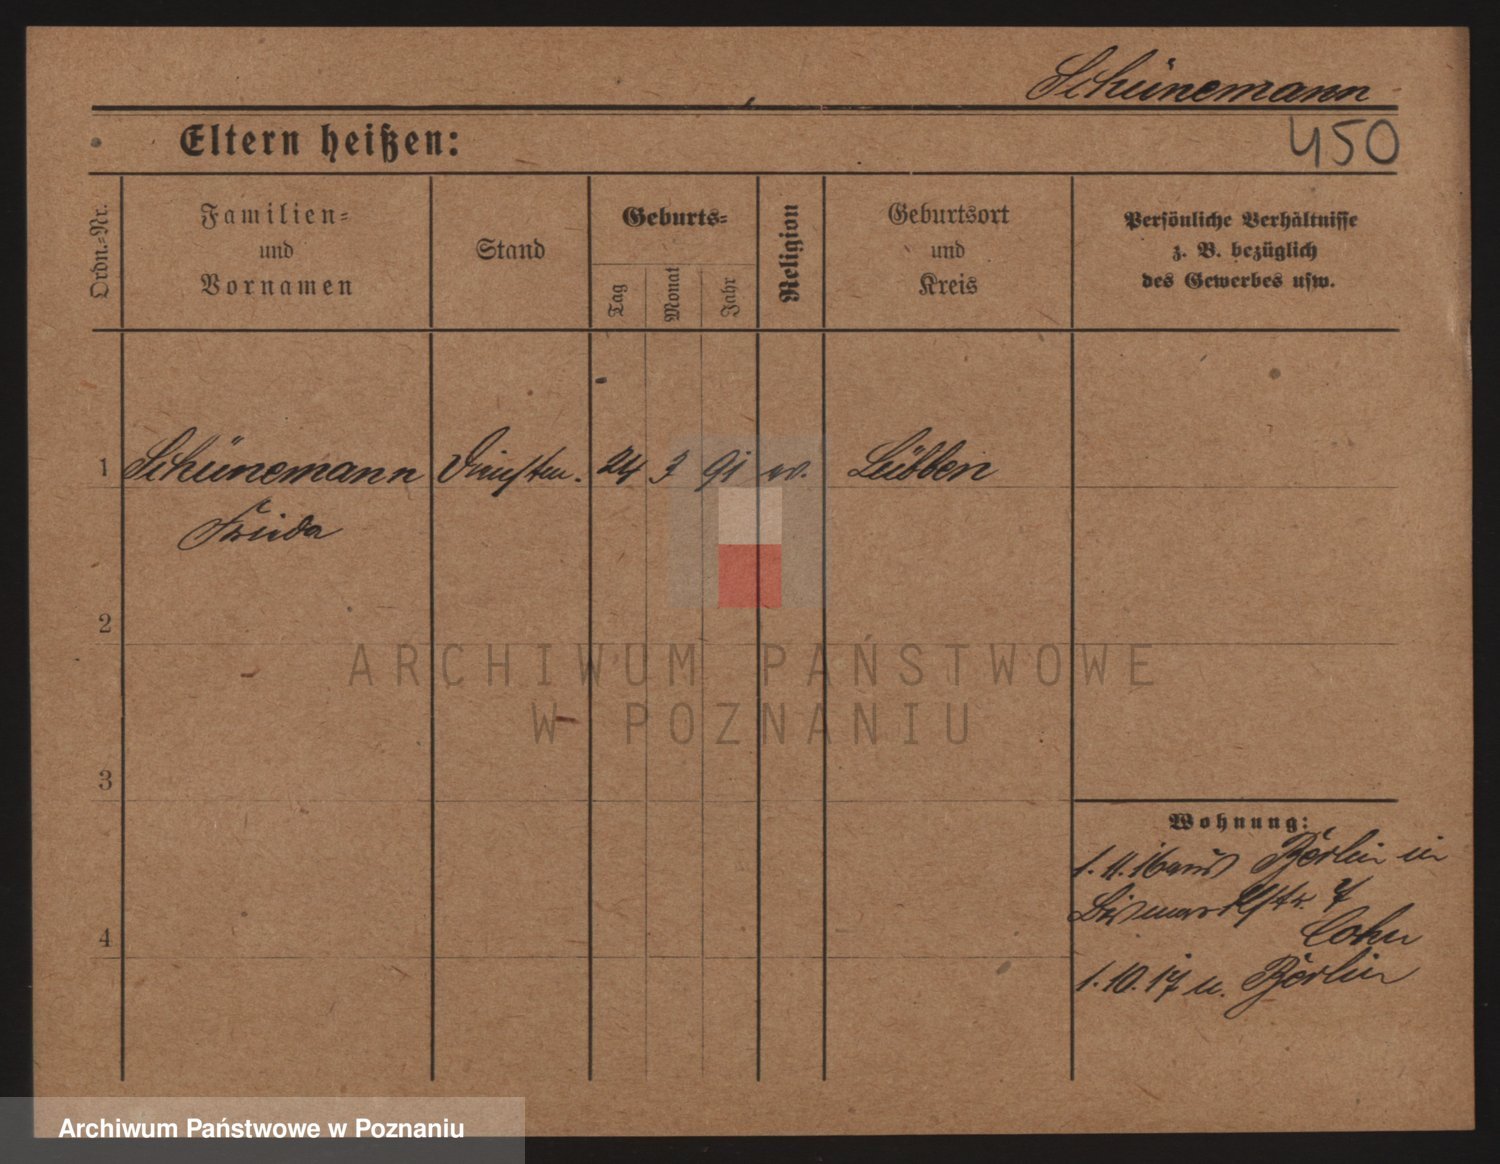 Schünemann
Eltern heißen:
450
Ordn.=Nr.
Familien=
und
Vornamen
Stand
Geburts=
Tag
Monat
Jahr
Religion
Geburtsort
und
Kreis
Persönliche Verhältnisse
z. B. bezüglich
des Gewerbes usw.
1 Schünemann 24 3 91 Lübben
Frieda
2
ARCHIWUM PAŃSTWOWE
W POZNANIU
3
Wohnung:
1.11.16 aus Berlin in
Bismarckstr. 7
Cohn
4
1.10.17 n. Berlin
Archiwum Państwowe w Poznaniu